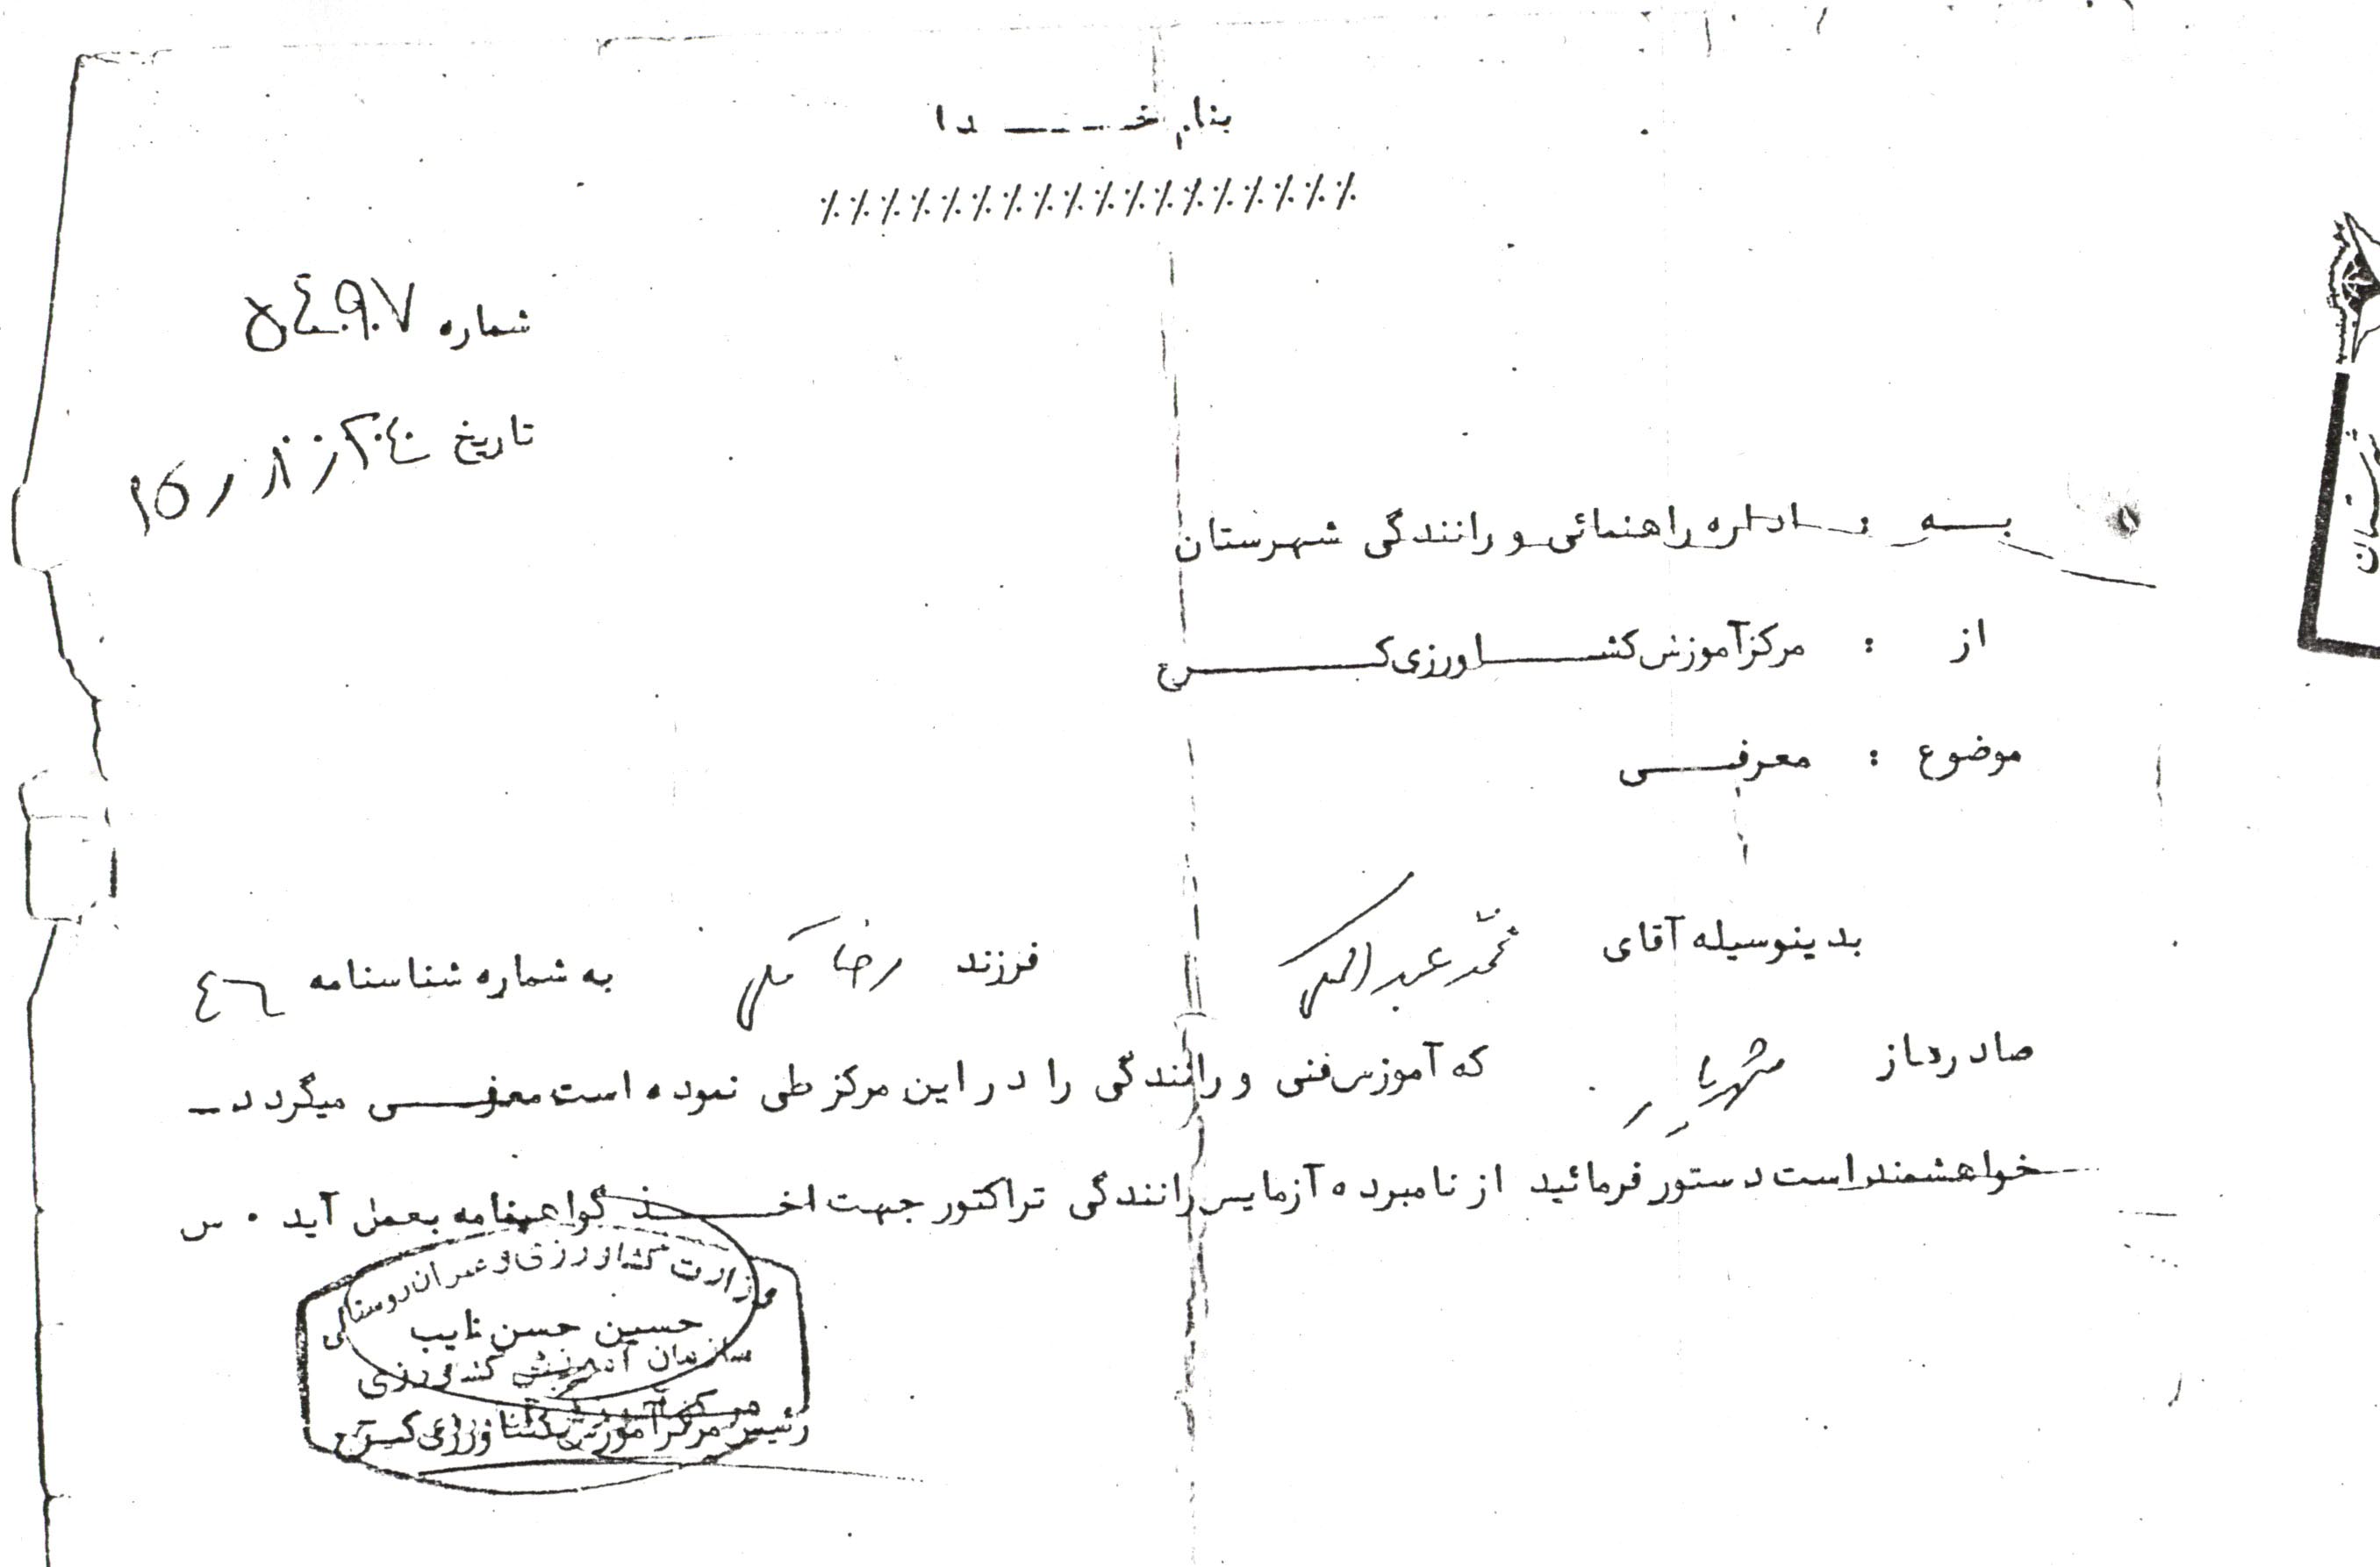 بنام خـــدا
٪٪٪٪٪٪٪٪٪٪٪٪٪٪٪٪٪٪
شماره ٥٤٩٧
تاریخ
بـه : اداره راهنمائی و رانندگی شهرستان
از : مرکز آموزش کشـــاورزی کـــرج
موضوع : معرفـــی
بدینوسیله آقای محمد عبدالهی فرزند رضا علی به شماره شناسنامه ٤٦
صادره از شهریار که آموزش فنی و رانندگی را در این مرکز طی نموده است معرفـــی میگردد ــ
خواهشمند است دستور فرمائید از نامبرده آزمایش رانندگی تراکتور جهت اخـــذ گواهینامه بعمل آید ٠ س
وزارت کشاورزی و عمران روستائی
حسین حسن نایب
سازمان آموزش کشاورزی
رئیس مرکز آموزش کشاورزی کرج